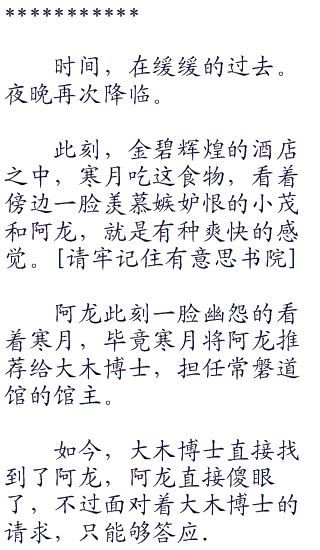 ***********
时间，在缓缓的过去。
夜晚再次降临。
此刻，金碧辉煌的酒店
之中，寒月吃这食物，看着
傍边一脸羡慕嫉妒恨的小茂
和阿龙，就是有种爽快的感
觉。[请牢记住有意思书院]
阿龙此刻一脸幽怨的看
着寒月，毕竟寒月将阿龙推
荐给大木博士，担任常磐道
馆的馆主。
如今，大木博士直接找
到了阿龙，阿龙直接傻眼
了，不过面对着大木博士的
请求，只能够答应.